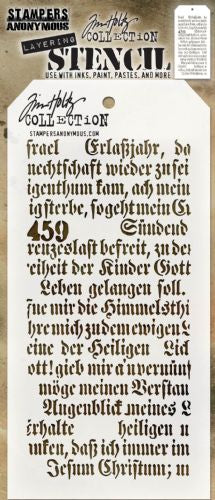 STAMPERS
ANONYMOUS
LAYERING
Tim Holtz
COLLECTION
STENCIL
USE WITH INKS, PAINT, PASTES, AND MORE!
Tim Holtz
COLLECTION
STAMPERSANONYMOUS.COM
frael Erlaßjahr, da
nechtschaft wieder zu sei
igenthum kam, ach mein
ig sterbe, so geht mein Ei
459 Sündend
renzeslast befreit, zu de
reiheit der Kinder Gott
Leben gelangen soll.
ne mir die Himmelsthü
hre mich zu dem ewigen L
eine der Heiligen Lich
ott! gieb mir a n vernünf
möge meinen Verstan
Augenblick meines L
erhalte heiligen u
nken, daß ich immer im
Jesum Christum; m